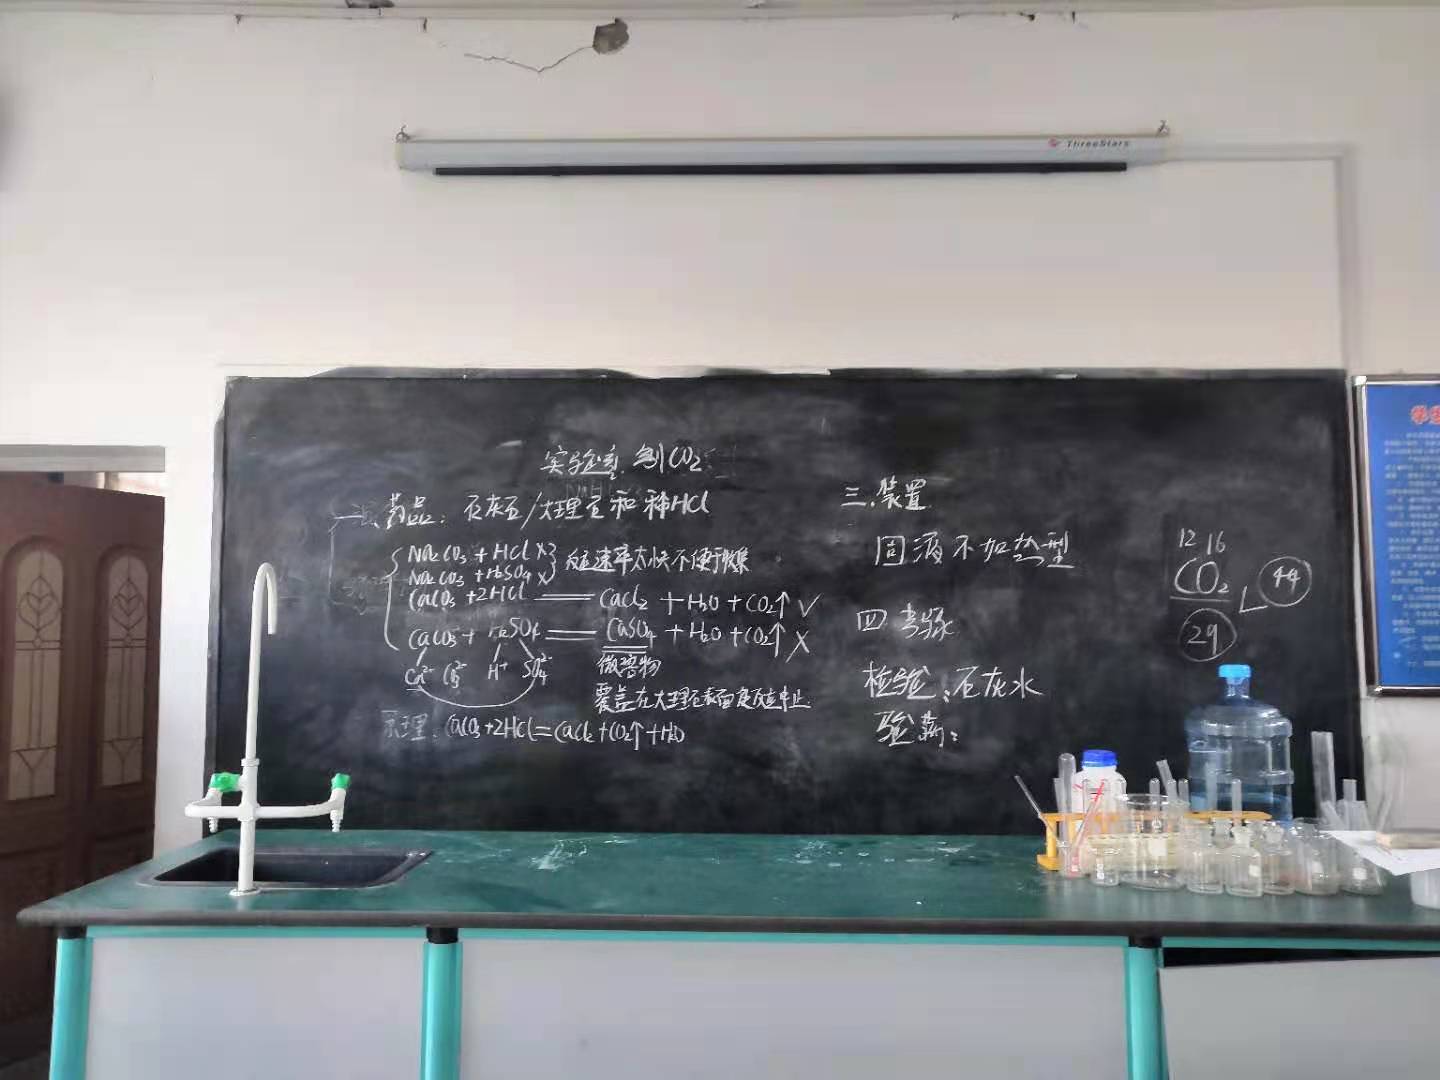 ThreeStars
实验室制CO₂
一、药品：石灰石/大理石和稀HCl
Na₂CO₃ + HCl ×
Na₂CO₃ + H₂SO₄ ×
反应速率太快不便于收集
CaCO₃ + 2HCl === CaCl₂ + H₂O + CO₂↑ √
CaCO₃ + H₂SO₄ === CaSO₄ + H₂O + CO₂↑ ×
Ca²⁺ CO₃²⁻ H⁺ SO₄²⁻
微溶物
覆盖在大理石表面使反应中止
原理：CaCO₃+2HCl=CaCl₂+CO₂↑+H₂O
三、装置
固液不加热型
四
检验：石灰水
验满：
12 16
CO₂
44
29
学生